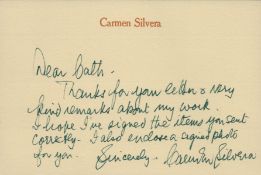 Carmen Silvera
Dear Cath.
Thanks for your letter & very
kind remarks about my work.
I hope I've signed the items you sent
correctly. I also enclose a signed photo
for you. Sincerely. Carmen Silvera